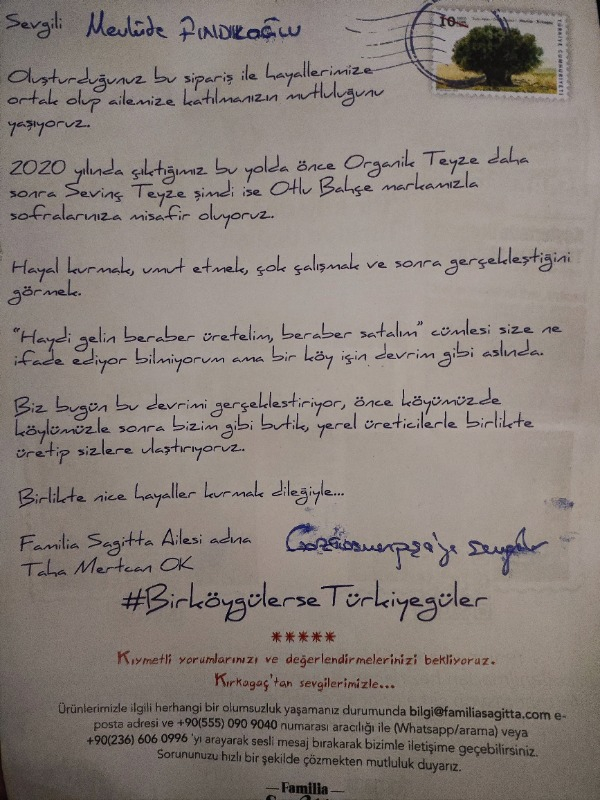 Sevgili Mevlüde FINDIKOĞLU
10
TÜRKİYE CUMHURİYETİ
Oluşturduğunuz bu sipariş ile hayallerimize
ortak olup ailemize katılmanızın mutluluğunu
yaşıyoruz.
2020 yılında çıktığımız bu yolda önce Organik Teyze daha
sonra Sevinç Teyze şimdi ise Otlu Bahçe markamızla
sofralarınıza misafir oluyoruz.
Hayal kurmak, umut etmek, çok çalışmak ve sonra gerçekleştiğini
görmek.
"Haydi gelin beraber üretelim, beraber satalım" cümlesi size ne
ifade ediyor bilmiyorum ama bir köy için devrim gibi aslında.
Biz bugün bu devrimi gerçekleştiriyor, önce köyümüzde
köylümüzle sonra bizim gibi butik, yerel üreticilerle birlikte
üretip sizlere ulaştırıyoruz.
Birlikte nice hayaller kurmak dileğiyle...
Familia Sagitta Ailesi adına
Taha Mertcan OK
Gaziosmanpaşa'ya sevgiler
#BirköygülerseTürkiyegüler
*****
Kıymetli yorumlarınızı ve değerlendirmelerinizi bekliyoruz.
Kırkağaç'tan sevgilerimizle...
Ürünlerimizle ilgili herhangi bir olumsuzluk yaşamanız durumunda bilgi@familiasagitta.com e-
posta adresi ve +90(555) 090 9040 numarası aracılığı ile (Whatsapp/arama) veya
+90(236) 606 0996 'yı arayarak sesli mesaj bırakarak bizimle iletişime geçebilirsiniz.
Sorununuzu hızlı bir şekilde çözmekten mutluluk duyarız.
Familia